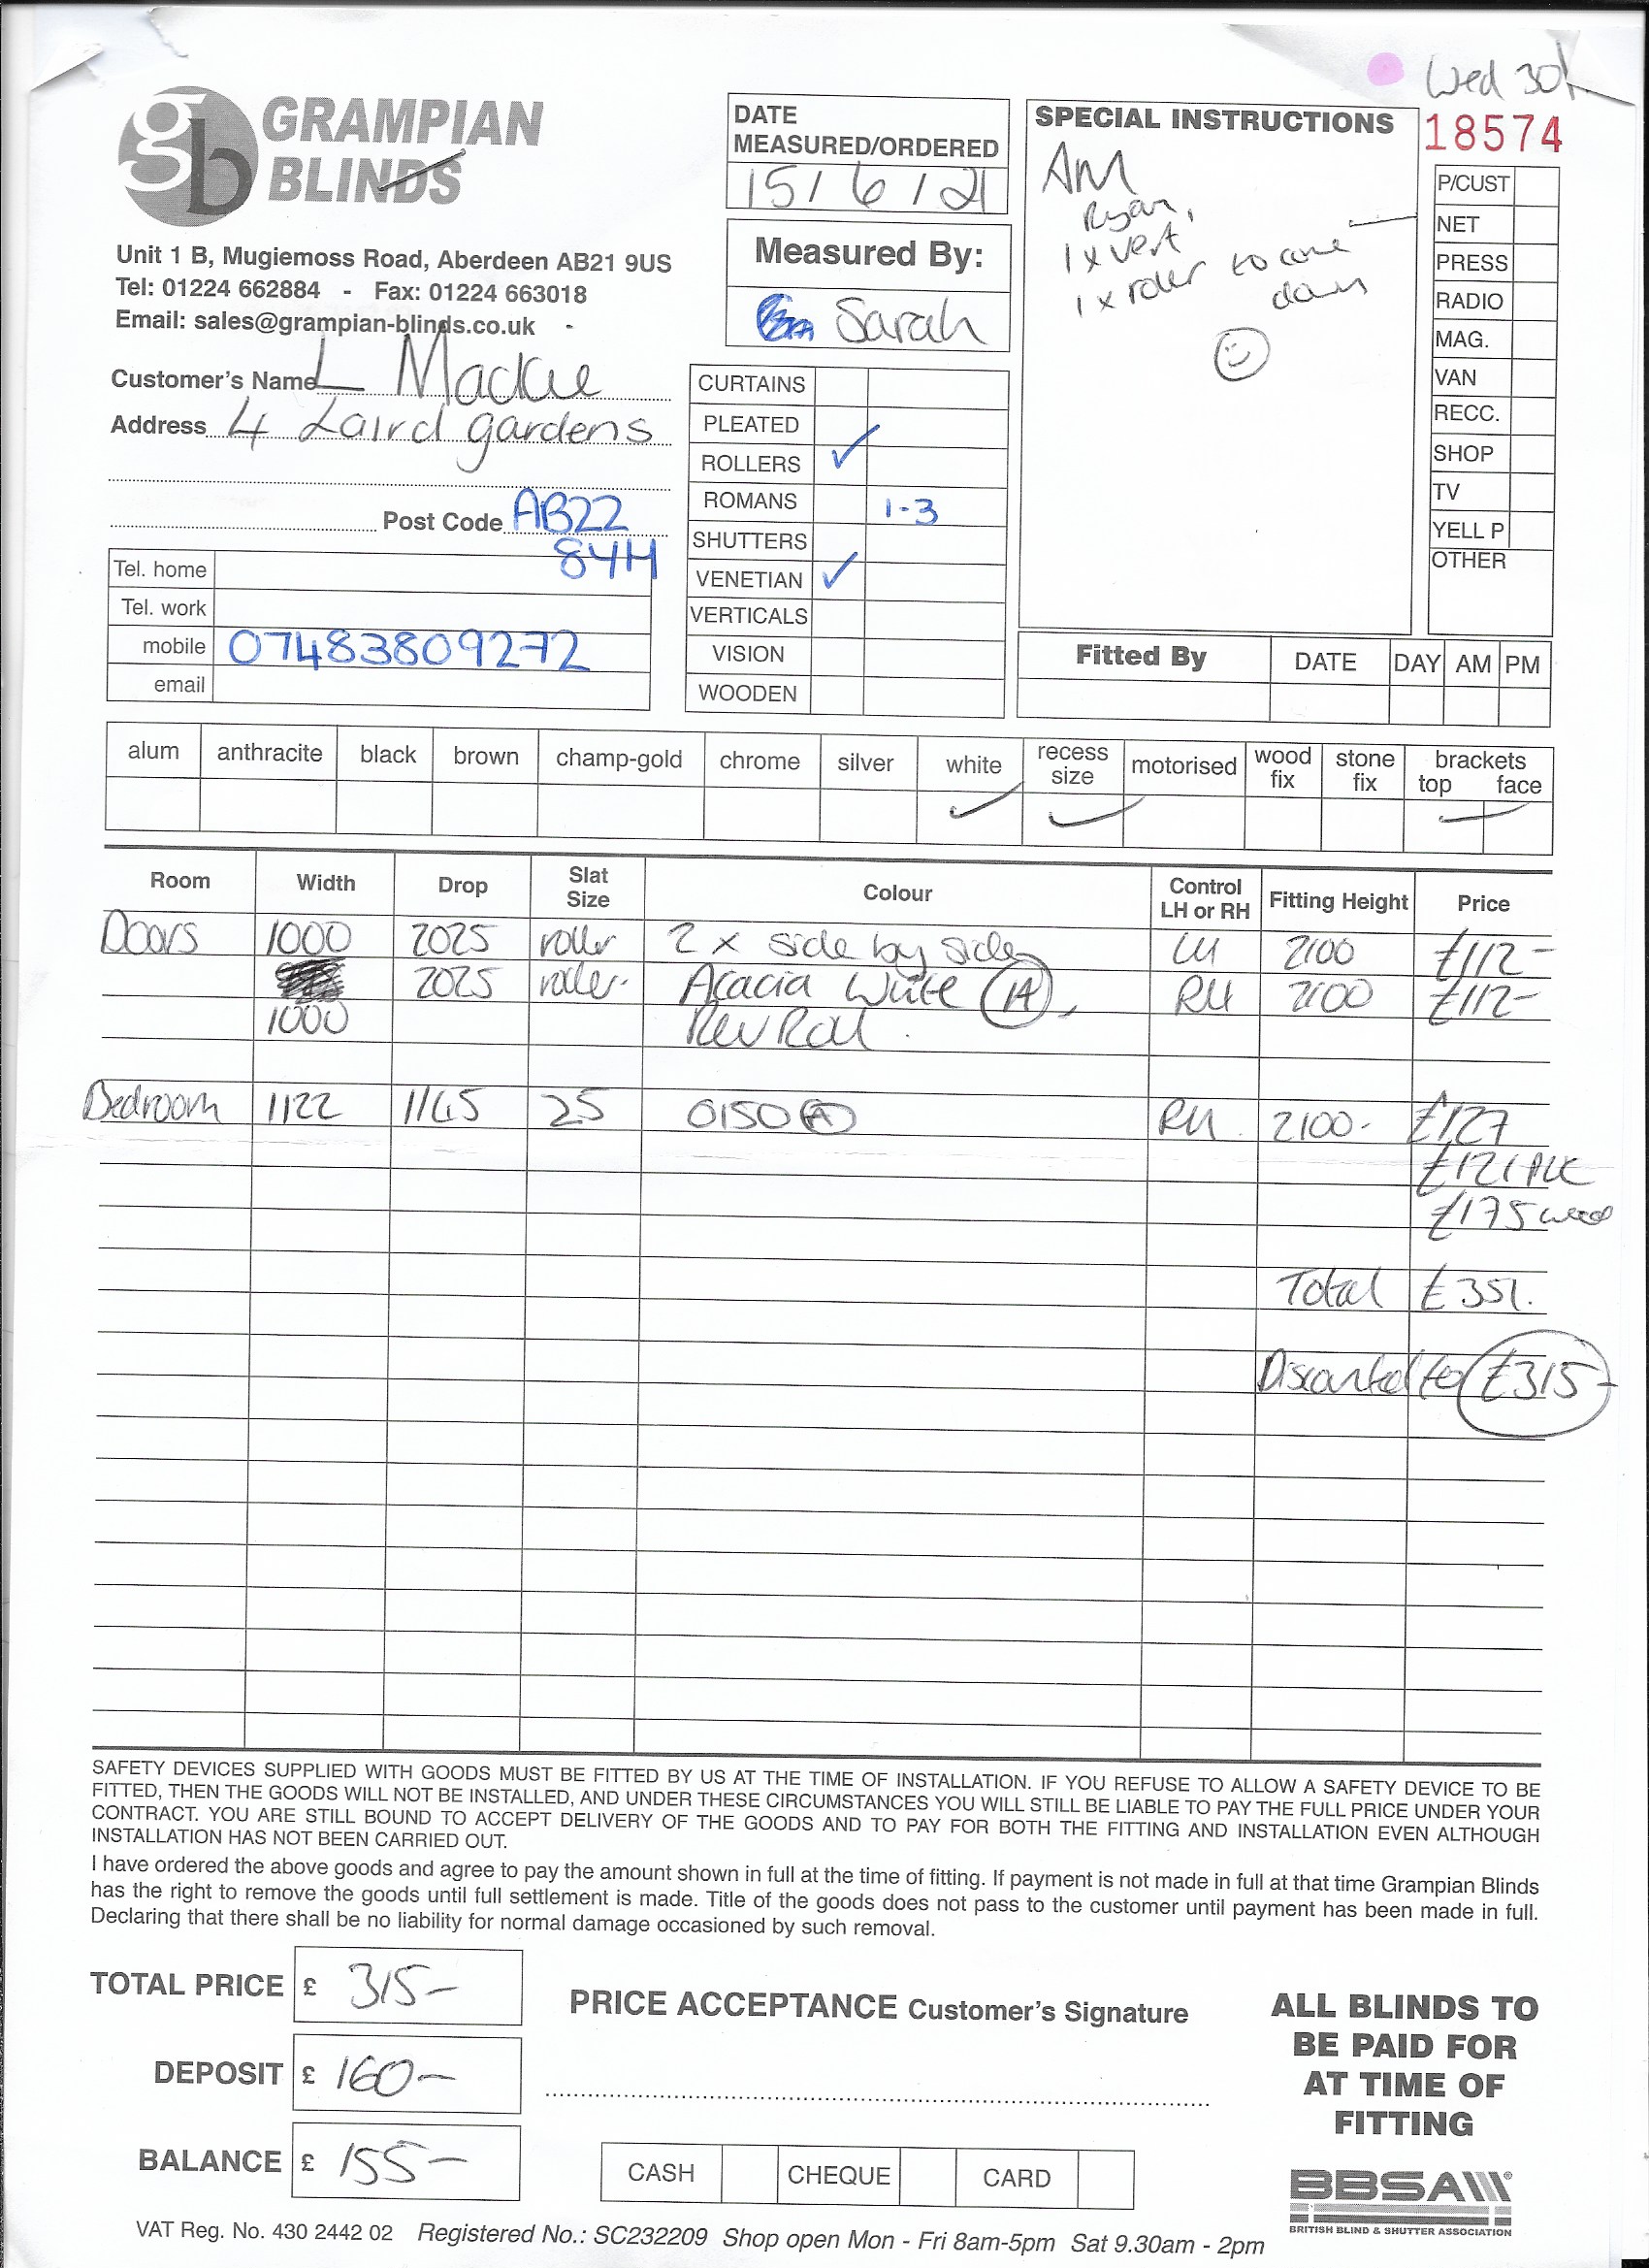 Wed 30th
18574
GRAMPIAN
BLINDS
gb
Unit 1 B, Mugiemoss Road, Aberdeen AB21 9US
Tel: 01224 662884 - Fax: 01224 663018
Email: sales@grampian-blinds.co.uk -
Customer's Name L Mackie
Address 4 Laird gardens
Post Code AB22
84H
Tel. home
Tel. work
mobile 07483809272
email
DATE
MEASURED/ORDERED
15/6/21
Measured By:
Sarah
CURTAINS
PLEATED
ROLLERS ✓
ROMANS 1-3
SHUTTERS
VENETIAN ✓
VERTICALS
VISION
WOODEN
SPECIAL INSTRUCTIONS
AM
Ryan,
1 x vert
1 x roller to come
down
P/CUST
NET
PRESS
RADIO
MAG.
VAN
RECC.
SHOP
TV
YELL P
OTHER
Fitted By DATE DAY AM PM
alum anthracite black brown champ-gold chrome silver white recess size motorised wood fix stone fix brackets top face
✓ ✓ ✓
Room Width Drop Slat Size Colour Control LH or RH Fitting Height Price
Doors 1000 2025 roller 2 x side by side LH 2100 £112-
2025 roller. Acacia White (A), RH 2100 £112-
1000 Rev Roll.
Bedroom 1122 1165 25 0150 (A) RH 2100- £127
£121 PVC
£175 wood
Total £351.
Discounted to £315-
SAFETY DEVICES SUPPLIED WITH GOODS MUST BE FITTED BY US AT THE TIME OF INSTALLATION. IF YOU REFUSE TO ALLOW A SAFETY DEVICE TO BE
FITTED, THEN THE GOODS WILL NOT BE INSTALLED, AND UNDER THESE CIRCUMSTANCES YOU WILL STILL BE LIABLE TO PAY THE FULL PRICE UNDER YOUR
CONTRACT. YOU ARE STILL BOUND TO ACCEPT DELIVERY OF THE GOODS AND TO PAY FOR BOTH THE FITTING AND INSTALLATION EVEN ALTHOUGH
INSTALLATION HAS NOT BEEN CARRIED OUT.
I have ordered the above goods and agree to pay the amount shown in full at the time of fitting. If payment is not made in full at that time Grampian Blinds
has the right to remove the goods until full settlement is made. Title of the goods does not pass to the customer until payment has been made in full.
Declaring that there shall be no liability for normal damage occasioned by such removal.
TOTAL PRICE £ 315-
DEPOSIT £ 160-
BALANCE £ 155-
PRICE ACCEPTANCE Customer's Signature
CASH CHEQUE CARD
ALL BLINDS TO
BE PAID FOR
AT TIME OF
FITTING
BBSA
BRITISH BLIND & SHUTTER ASSOCIATION
VAT Reg. No. 430 2442 02 Registered No.: SC232209 Shop open Mon - Fri 8am-5pm Sat 9.30am - 2pm